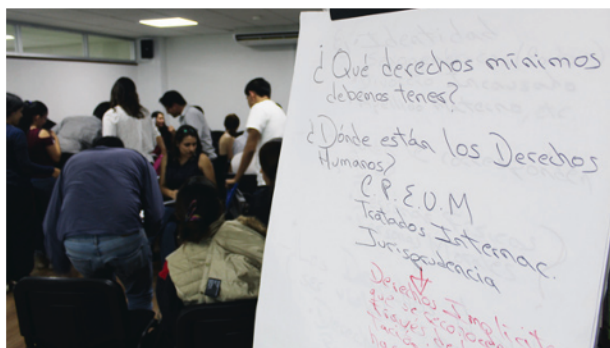 ¿Qué derechos mínimos
debemos tener?
¿Dónde están los Derechos
Humanos?
C.P.E.U.M
Tratados Internac.
Jurisprudencia
Derechos Implícit
que se
través de